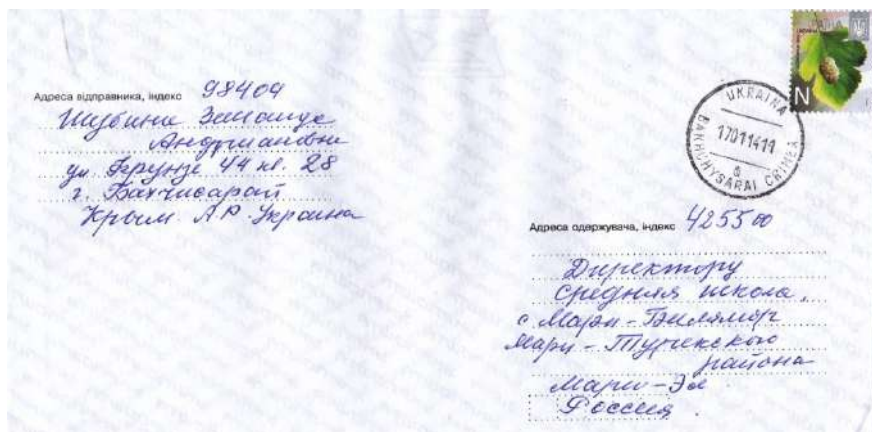 Адреса відправника, індекс 98404
Шубина
Андриановна
ул. Фрунзе 44 кв. 28
г. Бахчисарай
Крым АР. Украина
N
UKRAINA
17011411
а
BAKHCHYSARAI CRIMEA
Адреса одержувача, індекс 425500
Директору
Средняя школа,
с. Мари-Билямор
Мари-Турекского
района
Мари-Эл
Россия.